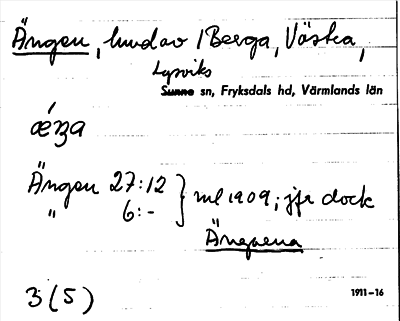 Ängen, lund av /Berga, Västra,
Lysviks
Sunne sn, Fryksdals hd, Värmlands län
ǽŋa
Ängen 27:12
" 6:- } ml 1909; jfr dock
Ängarna
3 (5)
1911–16